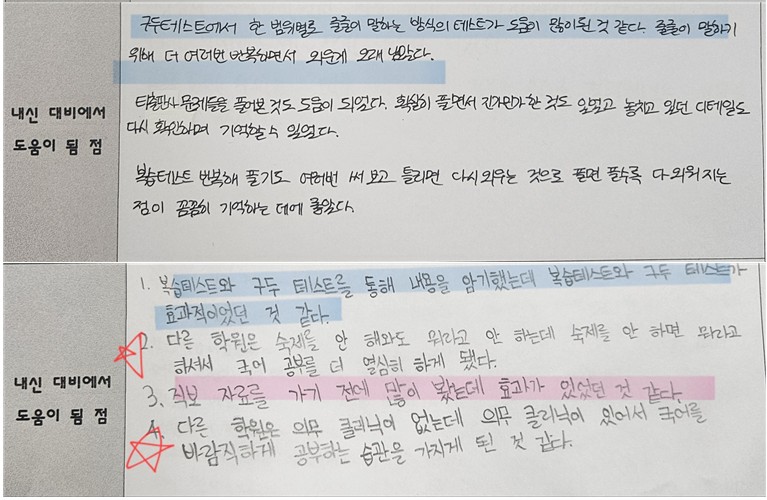 내신 대비에서
도움이 됨 점
구두테스트에서 한 범위별로 줄줄이 말하는 방식의 테스트가 도움이 많이 된 것 같다. 줄줄이 말하기
위해 더 여러번 반복하면서 외운게 오래 남았다.
타출판사 문제들을 풀어본 것도 도움이 되었다. 확실히 풀면서 긴가민가한 것도 있었고 놓치고 있던 디테일도
다시 확인하며 기억할 수 있었다.
복습테스트 반복해 풀기도 여러번 써 보고 틀리면 다시 외우는 것으로 풀면 풀수록 다 외워지는
점이 꼼꼼히 기억하는 데에 좋았다.
내신 대비에서
도움이 됨 점
1. 복습테스트와 구두 테스트를 통해 내용을 암기했는데 복습테스트와 구두 테스트가
효과적이었던 것 같다.
2. 다른 학원은 숙제를 안 해와도 뭐라고 안 하는데 숙제를 안 하면 뭐라고
하셔서 국어 공부를 더 열심히 하게 됐다.
3. 직보 자료를 가기 전에 많이 봤는데 효과가 있었던 것 같다.
4. 다른 학원은 의무 클리닉이 없는데 의무 클리닉이 있어서 국어를
바람직하게 공부하는 습관을 가지게 된 것 같다.